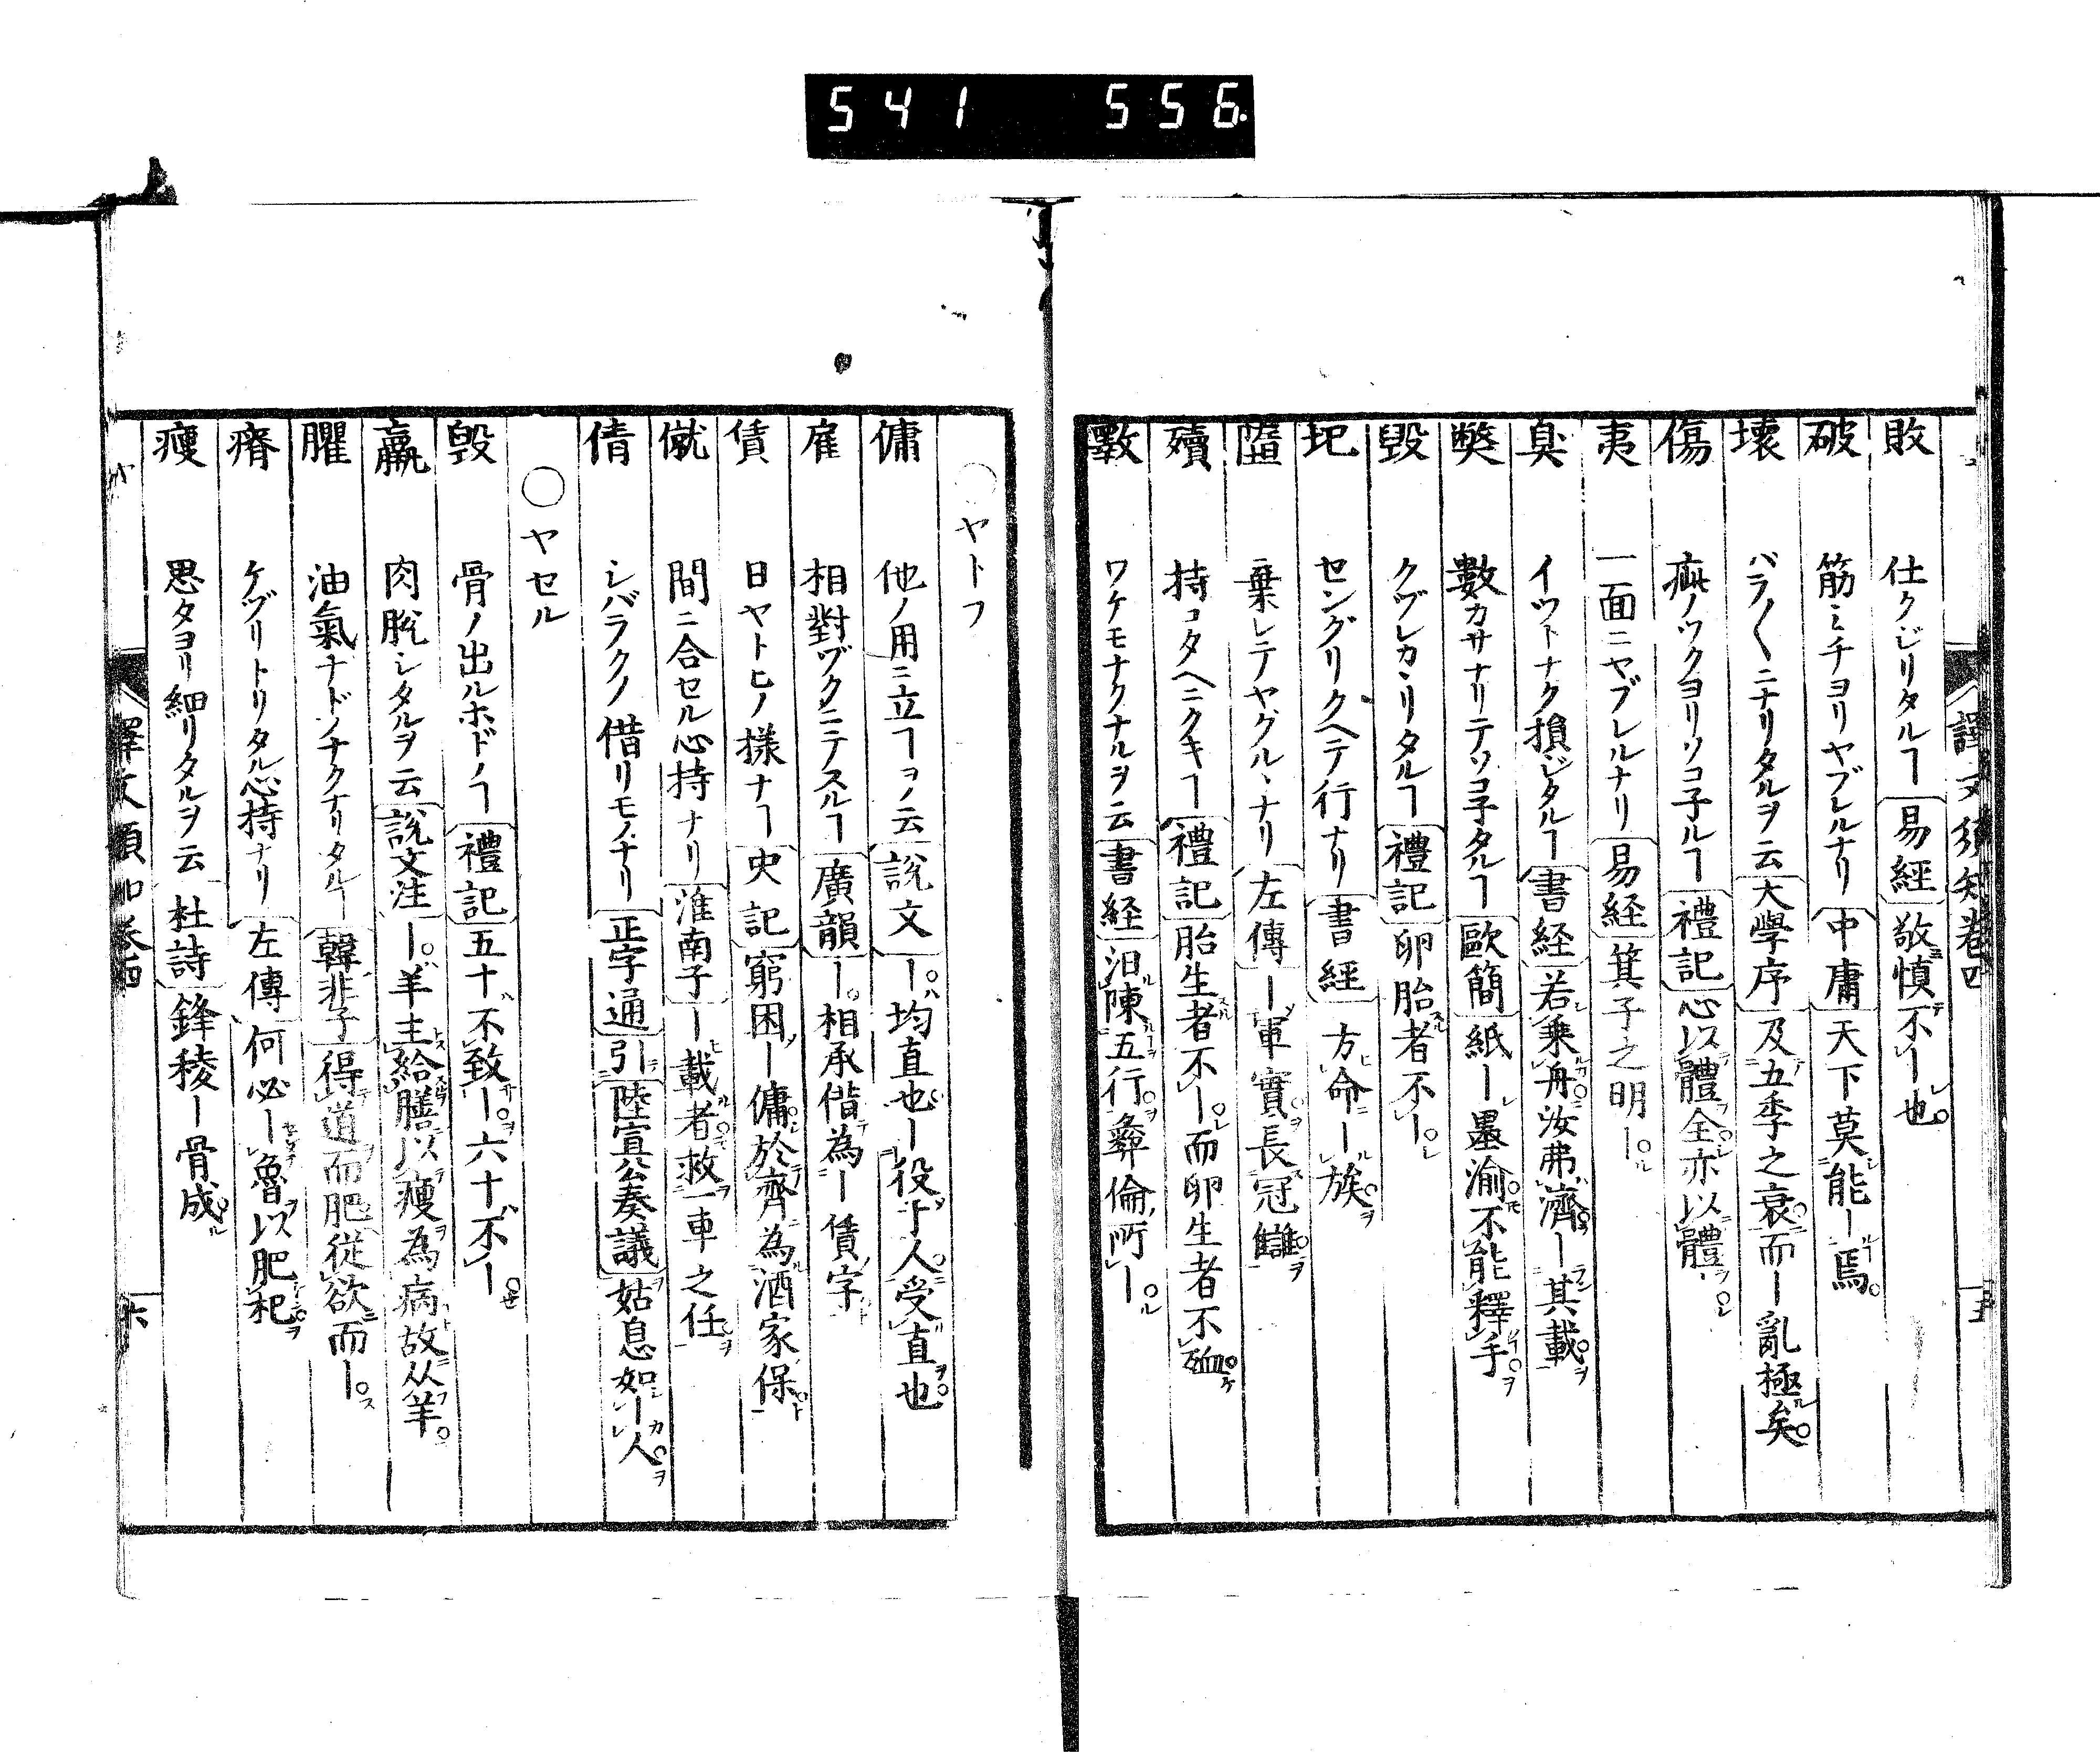 541 556
譯文須知巻四
十五
敗 仕クジリタルヿ 易經 敬慎不ー也
破 筋ミチヨリヤブレルナリ 中庸 天下莫能ー焉
壞 バラ〱ニナリタルヲ云 大學序 及五季之衰而ー亂極矣
傷 疵ノツクヨリソコ子ルヿ 禮記 心以體全亦以體ー
夷 一面ニヤブレルナリ 易経 箕子之明ー
臭 イツトナク損ジタルヿ 書経 若乗舟汝弗濟ー其載
獘 數カサナリテソコ子タルヿ 歐簡 紙ー墨渝不能釋手
毀 クヅレカヽリタルヿ 禮記 卵胎者不ー
圯 センググリクヘテ行ナリ 書經 方命ー族
墮 棄レテヤグルヽナリ 左傳 ー軍實長冠讎
殰 持コタヘニクキヿ 禮記 胎生者不ー而卵生者不殈
斁 ワケモナクナルヲ云 書経 汩陳五行彝倫所ー
○ヤトフ
傭 他ノ用ニ立ヿヲノ云 說文 ー均直也ー役于人受直也
雇 相對ヅクニテスルヿ 廣韻 ー相承借為ー賃字
賃 日ヤトヒノ様ナヿ 史記 窮困ー傭於齊為酒家保
僦 間ニ合セル心持ナリ 淮南子 ー載者救一車之任
倩 シバラクノ借リモノナリ 正字通 引 陸宣公奏議 姑息如ー人
○ヤセル
毀 骨ノ出ルホドノヿ 禮記 五十不致ー六十不ー
羸 肉脱シタルヲ云 說文注 ー羊主給膳以瘦為病故从羊
臞 油氣ナドノナクナリタルヿ 韓非子 得道而肥従欲而ー
瘠 ケヅリトリタル心持ナリ 左傳 何必ー魯以肥杞
瘦 思タヨリ細リタルヲ云 杜詩 鋒稜ー骨成
譯文須知巻四
十六